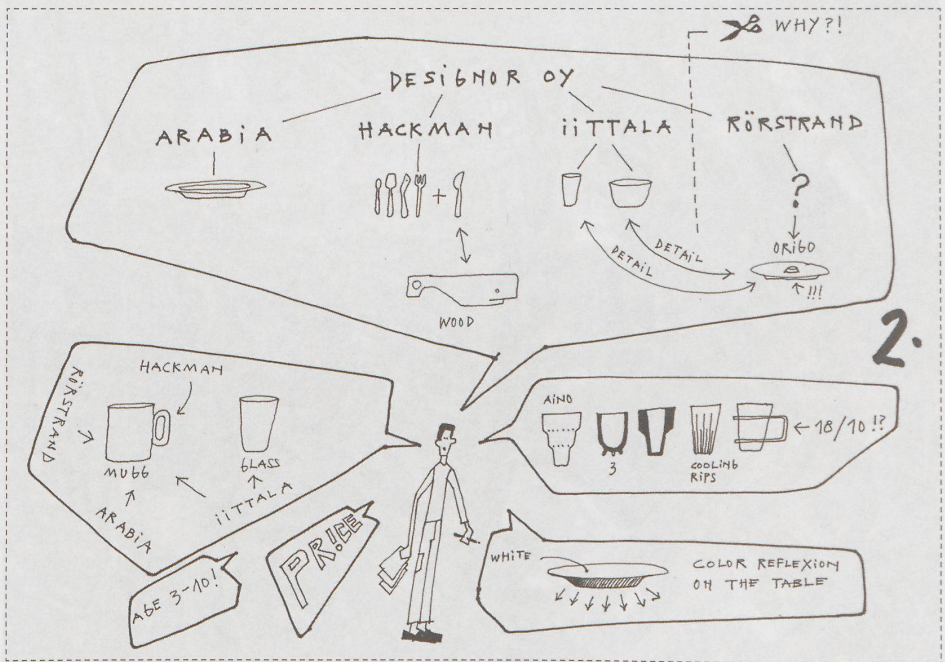 WHY?!
DESIGNOR OY
ARABIA
HACKMAN
iiTTALA
RÖRSTRAND
+
?
ORIGO
DETAIL
DETAIL
!!!
WOOD
2.
HACKMAN
RÖRSTRAND
MUGG
GLASS
ARABIA
iiTTALA
AINO
18/10!?
3
COOLING
RIPS
PR!CE
AGE 3-10!
WHITE
COLOR REFLEXION
ON THE TABLE